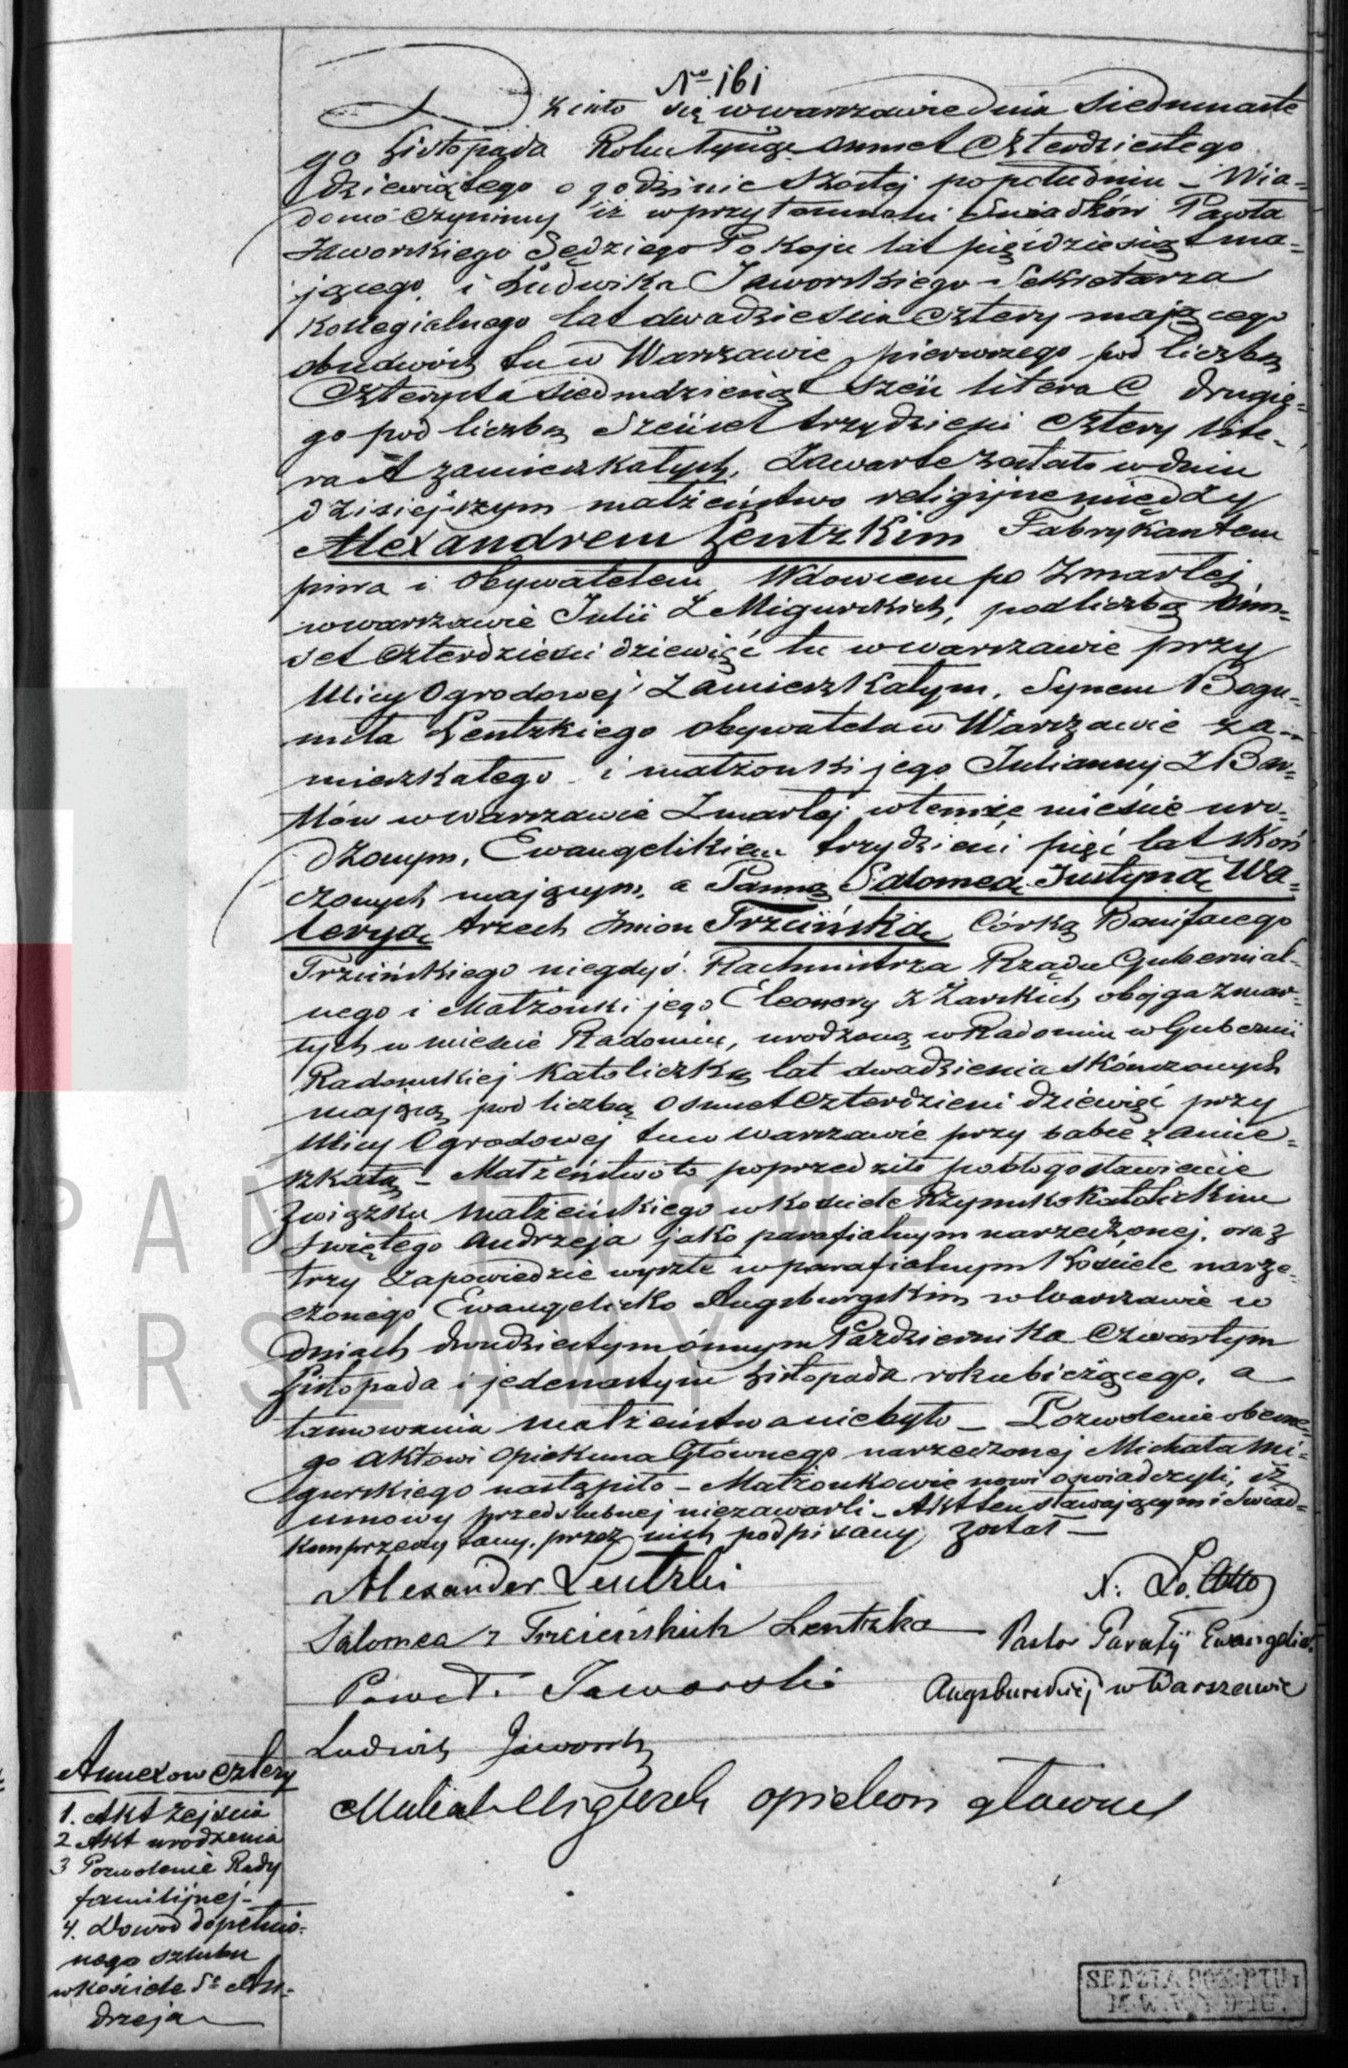 No 161
Działo się w Warszawie dnia Siedmnaste
go Listopada Roku Tysiąc osmset Czterdziestego
dziewiątego o godzinie Szóstej popołudniu – Wia-
domo czynimy iż w przytomności Świadków Pawła
Jaworskiego Sędziego Pokoju lat pięćdziesiąt ma-
jącego, i Ludwika Jaworskiego – Sekretarza
Kollegialnego lat dwadzieścia cztery mającego
obudwóch tu w Warszawie pierwszego pod liczbą
Czterysta siedmdziesiąt sześć litera C drugie-
go pod liczbą Sześćset trzydzieści cztery lite-
ra A zamieszkałych, Zawarte zostało w dniu
dzisiejszym małżeństwo religijne między
Alexandrem Lentzkim Fabrykantem
piwa i Obywatelem, Wdowcem po Zmarłej
w Warszawie Julii z Migurskich, pod liczbą Osm-
set czterdzieści dziewięć tu w Warszawie przy
Ulicy Ogrodowej Zamieszkałym, Synem Bogu-
miła Lentzkiego obywatela w Warszawie za-
mieszkałego i małżonki jego Julianny z Bar-
tlów w Warszawie Zmarłej w temże mieście uro-
dzonym, Ewangelikiem trzydzieści pięć lat skoń
czonych mającym, a Panną Salomeą Justyną Wa-
leryą trzech Imion Trzcińską Córką Bonifacego
Trzcińskiego niegdyś Rachmistrza Rządu Gubernial-
nego i Małżonki jego Eleonory z Żarskich obojga zmar-
łych w mieście Radomiu, urodzoną w Radomiu w Gubernii
Radomskiej Katoliczką lat dwadzieścia skończonych
mającą pod liczbą osmset czterdzieści dziewięć przy
Ulicy Ogrodowej tu w Warszawie przy babce zamie-
szkałą – Małżeństwo to poprzedziło pobłogosławienie
Związku Małżeńskiego w kościele Rzymsko Katolickim
Świętego Andrzeja jako parafialnym narzeczonej, oraz
trzy Zapowiedzie wyszłe w parafialnym Kościele narze-
czonego Ewangelicko Augsburgskim w Warszawie w
dniach dwudziestym ósmym Października Czwartym
Listopada i jedenastym Listopada roku bieżącego, a
tamowania małżeństwa nie było – Pozwolenie obecne-
go aktowi Opiekuna Głównego narzeczonej Michała Mi-
gurskiego nastąpiło – Małżonkowie nowi oświadczyli, iż
umowy przedślubnej niezawarli – Akt ten stawającym i Świad-
kom przeczytany, przez nich podpisany został –
Alexander Lentzki
Salomea z Trzcińskich Lentzka
Paweł Jaworski
Ludwik Jaworski
X. Otto
Pastor Parafij Ewangelick.
Augsburskiej w Warszawie
Michał Migurski opiekon głowny
Annexow cztery
1. Akt Zejścia
2 Akt urodzenia
3 Pozwolenie Rady
familijnej –
4. Dowód dopełnio-
nego szlubu
w kościele Sgo An-
drzeja
SĘDZIA POK: PTU
PAŃSTWOWE
WARSZAWY